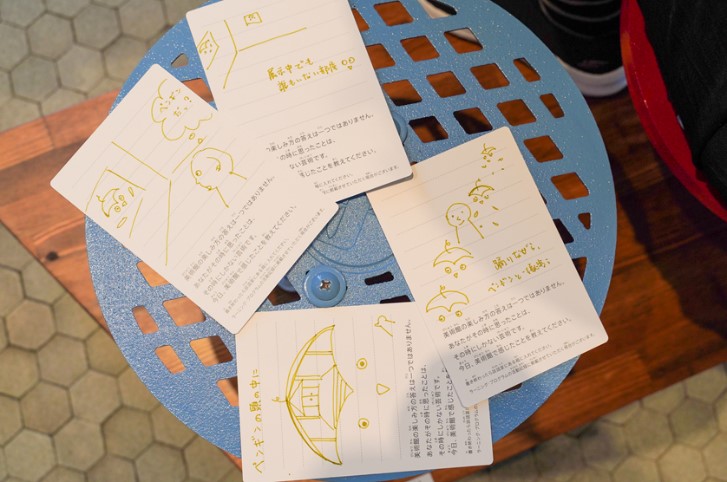 展示中でも
誰もいない部屋
楽しみ方の答えは一つではありません。
の時に思ったことは、
ない芸術です。
じたことを教えてください。
ペンギン
だ
美術館の楽しみ方の答えは一つではありません。
あなたがその時に思ったことは、
その時にしかない芸術です。
今日、美術館で感じたことを教えてください。
踊りながら、
ペンギンと
美術館の楽しみ方の答えは一つではありません。
あなたがその時に思ったことは、
その時にしかない芸術です。
今日、美術館で感じたことを教えてください。
ペンギンの頭の中に
美術館の楽しみ方の答えは一つではありません。
あなたがその時に思ったことは、
その時にしかない芸術です。
今日、美術館で感じたこと